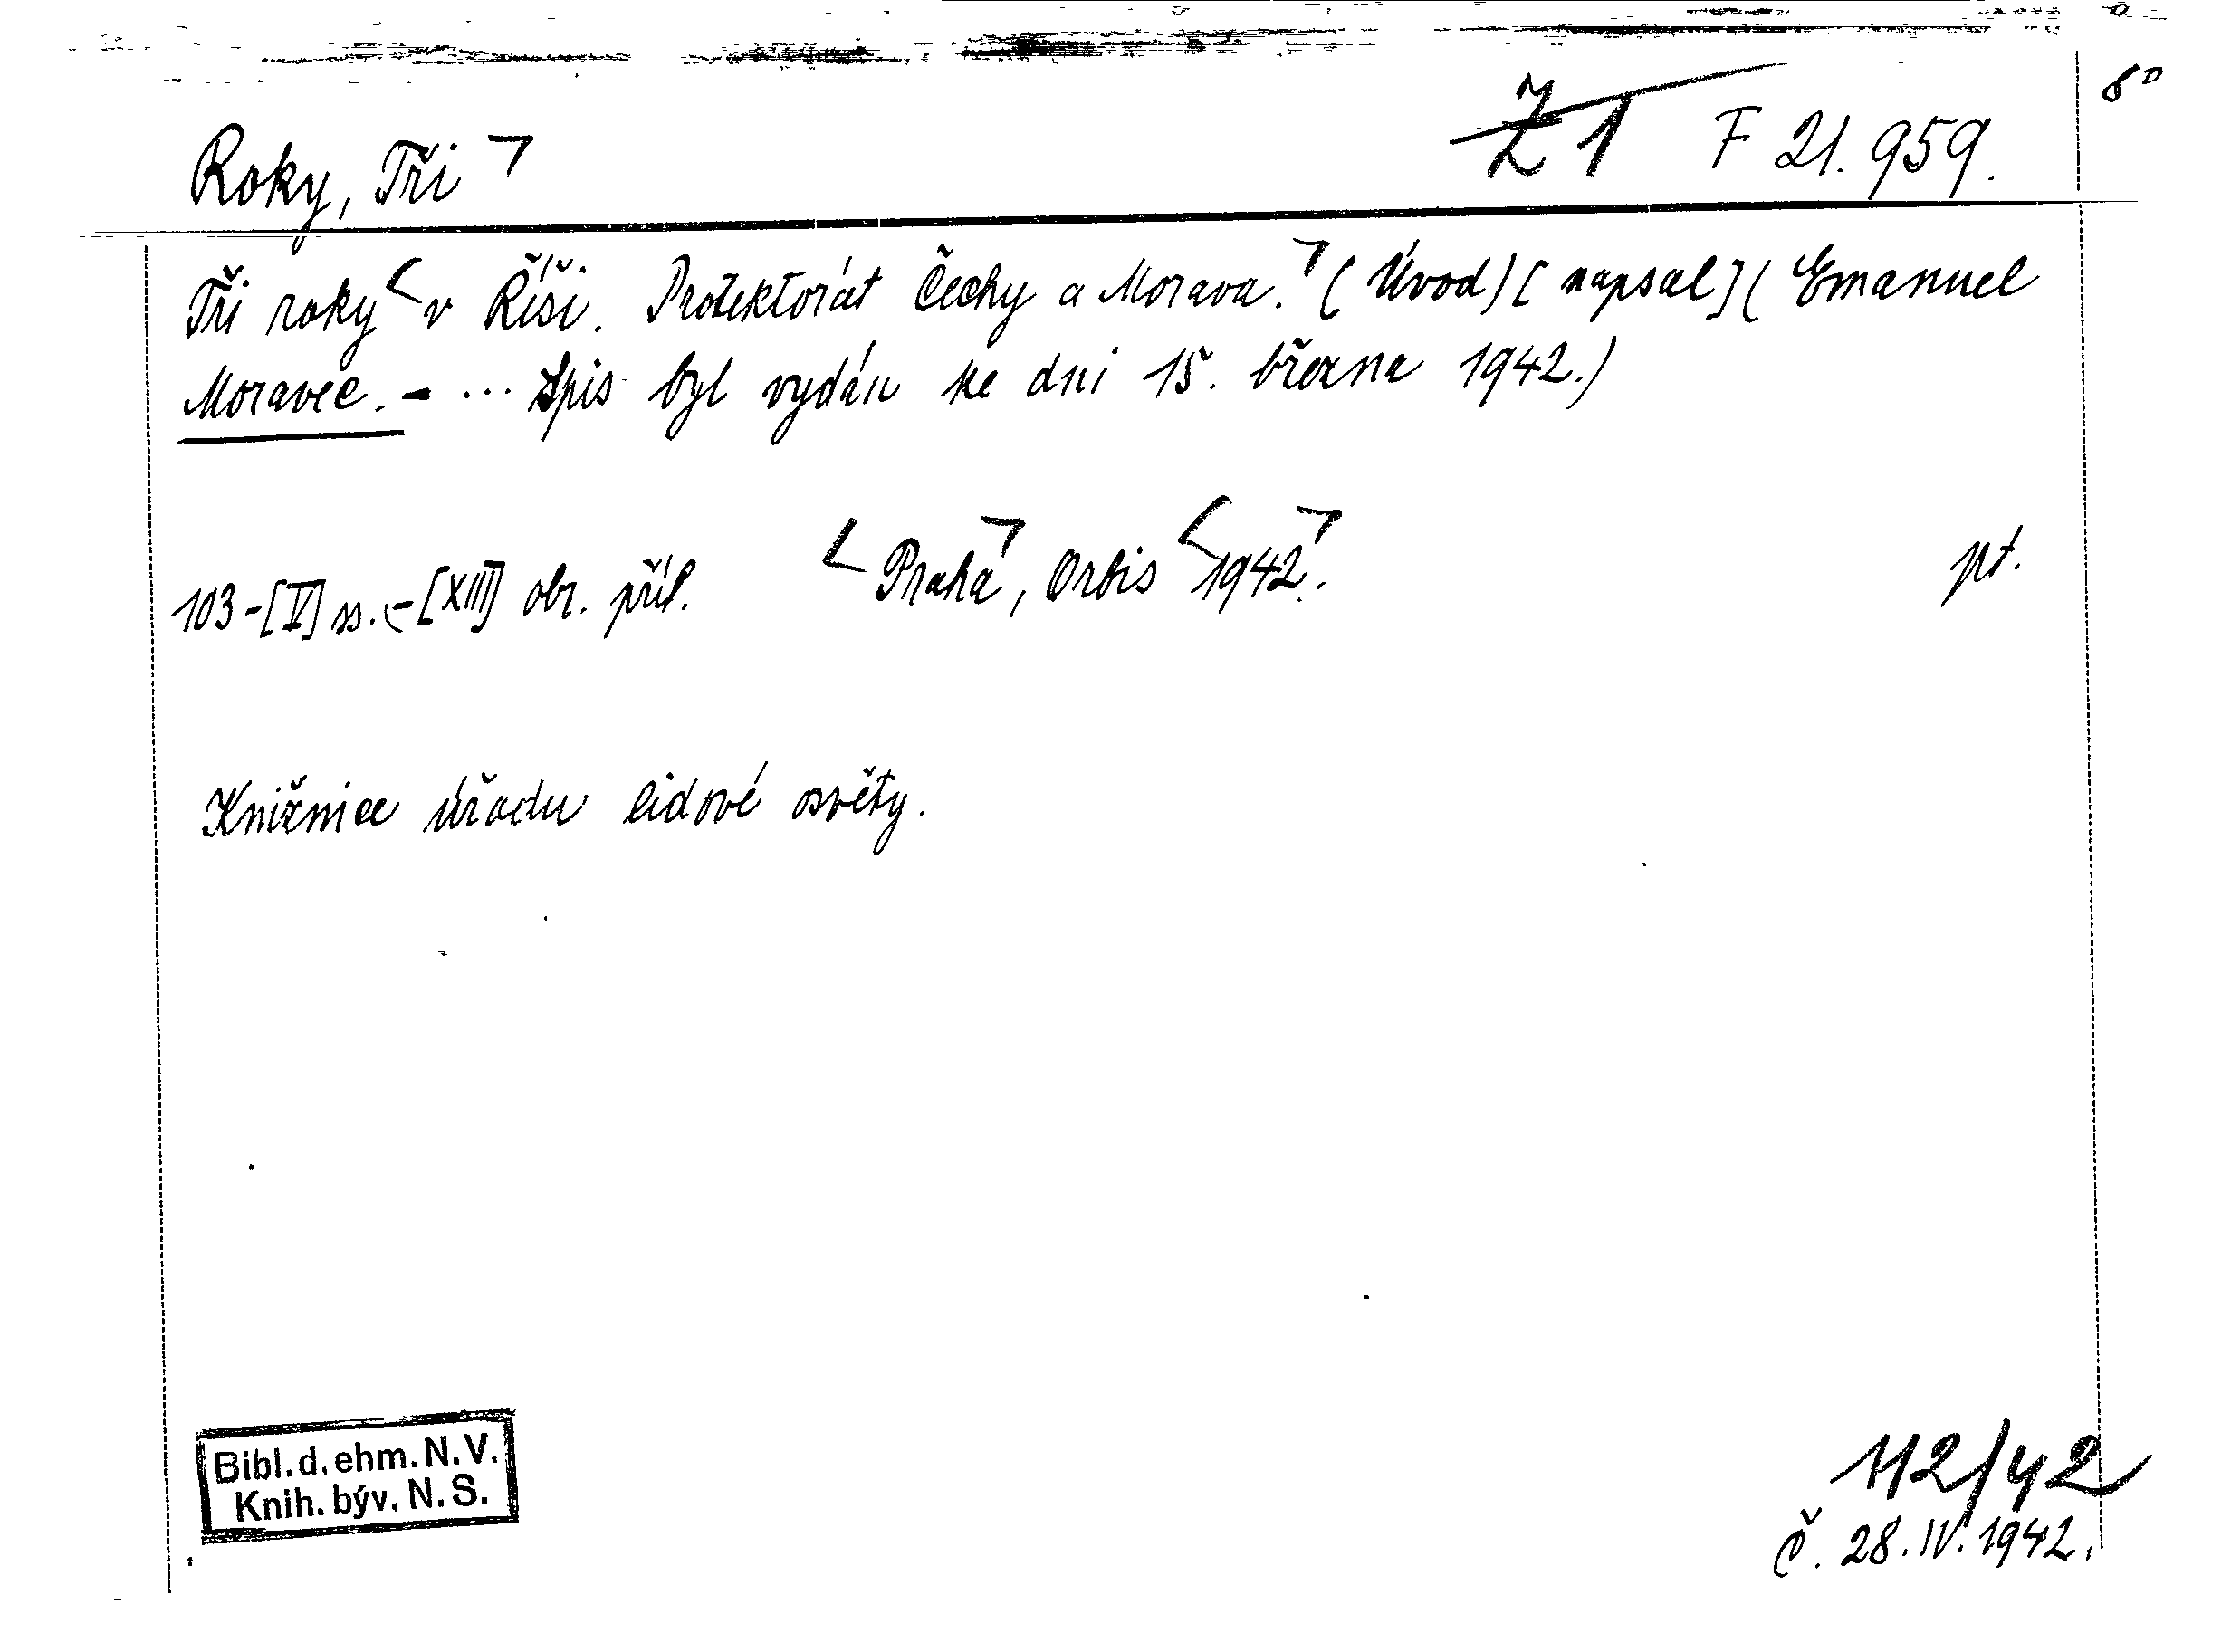 8°
Roky, Tři ¬ Ž 1 F 21.959.
Tři roky < v Říši. Protektorát Čechy a Morava. ¬ (Úvod) [napsal] (Emanuel
Moravec. - ... Spis byl vydán ke dni 15. března 1942.)
103-[V] ss. - [XIII] obr. příl. < Praha ¬, Orbis < 1942 ¬. pt.
Knižnice úřadu lidové osvěty.
Bibl. d. ehm. N. V.
Knih. býv. N. S.
112/42
č. 28. IV. 1942.